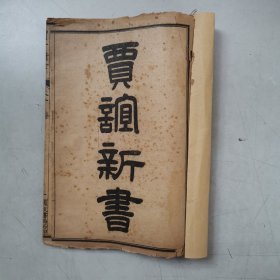 賈誼新書